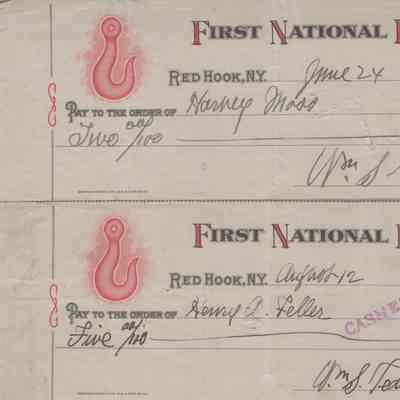 FIRST NATIONAL
RED HOOK, N.Y. June 24
PAY TO THE ORDER OF Harvey Moss
Two 00/100
Wm S
FIRST NATIONAL
RED HOOK, N.Y. August 12
PAY TO THE ORDER OF Henry D. Feller
Five 00/100
Wm. S. Te